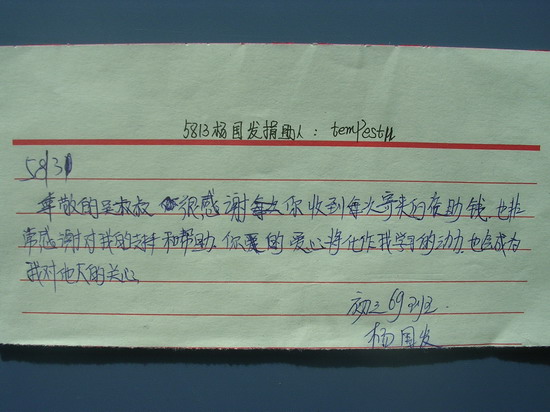 5813杨国发捐助人：tempestμ
58131
尊敬的吴叔叔 很感谢你收到每次寄来的资助钱.也非
常感谢对我的支持和帮助.你的爱心将化作我学习的动力.也会成为
我对他人的关心
初三69班.
杨国发